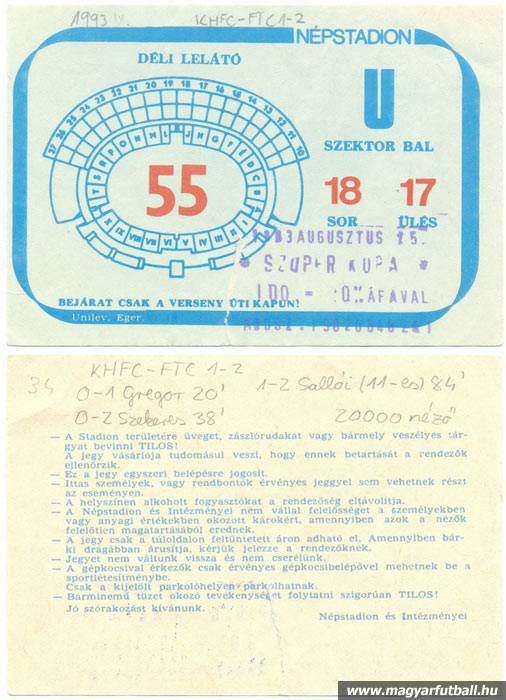 1993 IV. KHFC-FTC 1-2
NÉPSTADION
DÉLI LELÁTÓ
U
SZEKTOR BAL
27 26 25 24 23 22 21 20 19 18 17 16 15 14 13 12 11 10
T S R P O N M L K J I H G F E D C B
55
18 17
SOR ÜLÉS
XI X IX VIII VII VI V IV III II I
AUGUSZTUS
* SZUPER KUPA *
ÁFÁVAL
BEJÁRAT CSAK A VERSENY ÚTI KAPUN!
Unilev, Eger.
34 KHFC-FTC 1-2
0-1 Gregor 20' 1-2 Sallói (11-es) 84'
0-2 Szekeres 38' 20000 néző
— A Stadion területére üveget, zászlórudakat vagy bármely veszélyes tár-
gyat bevinni TILOS!
A jegy vásárlója tudomásul veszi, hogy ennek betartását a rendezők
ellenőrzik.
— Ez a jegy egyszeri belépésre jogosít.
— Ittas személyek, vagy rendbontók érvényes jeggyel sem vehetnek részt
az eseményen.
— A helyszínen alkoholt fogyasztókat a rendezőség eltávolítja.
— A Népstadion és Intézményei nem vállal felelősséget a személyekben
vagy anyagi értékekben okozott károkért, amennyiben azok a nézők
felelőtlen magatartásából erednek.
— A jegy csak a túloldalon feltüntetett áron adható el. Amennyiben bár-
ki drágábban árusítja, kérjük jelezze a rendezőknek.
— Jegyet nem váltunk vissza és nem cserélünk.
— A gépkocsival érkezők csak érvényes gépkocsibelépővel mehetnek be a
sportlétesítménybe.
Csak a kijelölt parkolóhelyen parkolhatnak.
— Bárminemű tüzet okozó tevékenységet folytatni szigorúan TILOS!
Jó szórakozást kívánunk.
Népstadion és Intézményei
www.magyarfutball.hu